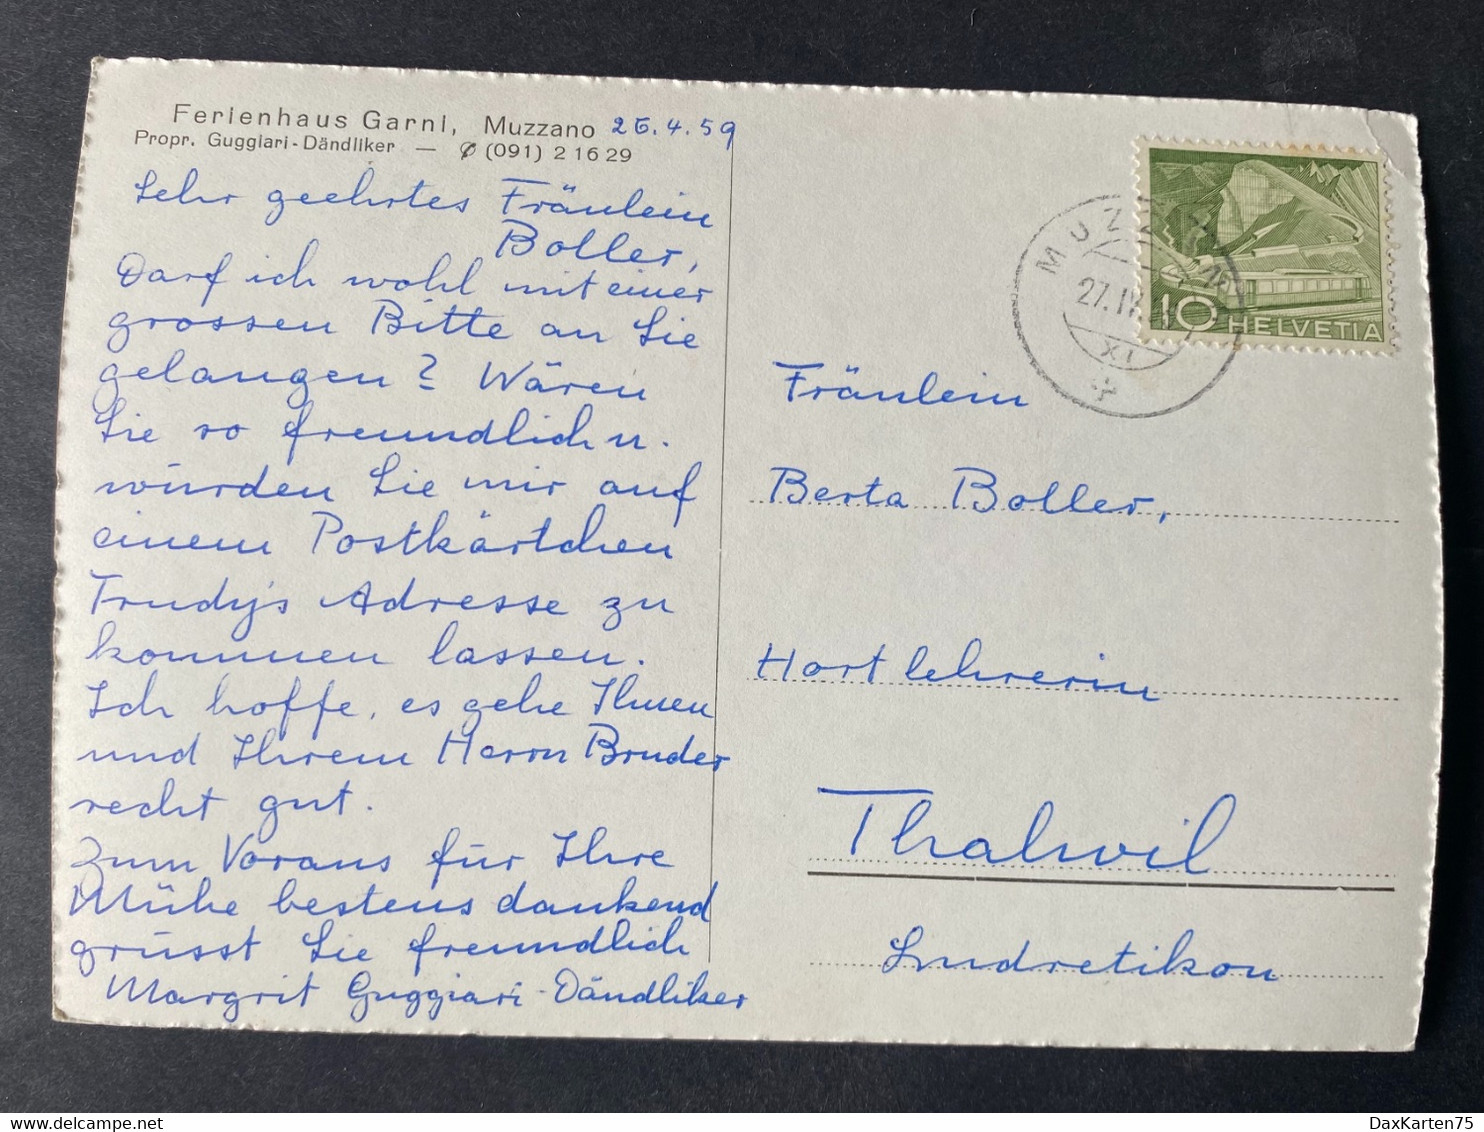 Ferienhaus Garni, Muzzano 26.4.59
Propr. Guggiari-Dändliker — ✆ (091) 2 16 29
Sehr geehrtes Fräulein
Boller,
Darf ich wohl mit einer
grossen Bitte an Sie
gelangen? Wären
Sie so freundlich u.
würden Sie mir auf
einem Postkärtchen
Trudy's Adresse zu
kommen lassen.
Ich hoffe, es gehe Ihnen
und Ihrem Herrn Bruder
recht gut.
Zum Voraus für Ihre
Mühe bestens dankend
grüsst Sie freundlich
Margrit Guggiari-Dändliker
MUZZANO
27.IV.
XI
10 HELVETIA
Fräulein
Berta Boller,
Hortlehrerin
Thalwil
Ludretikon
DaxKarten75